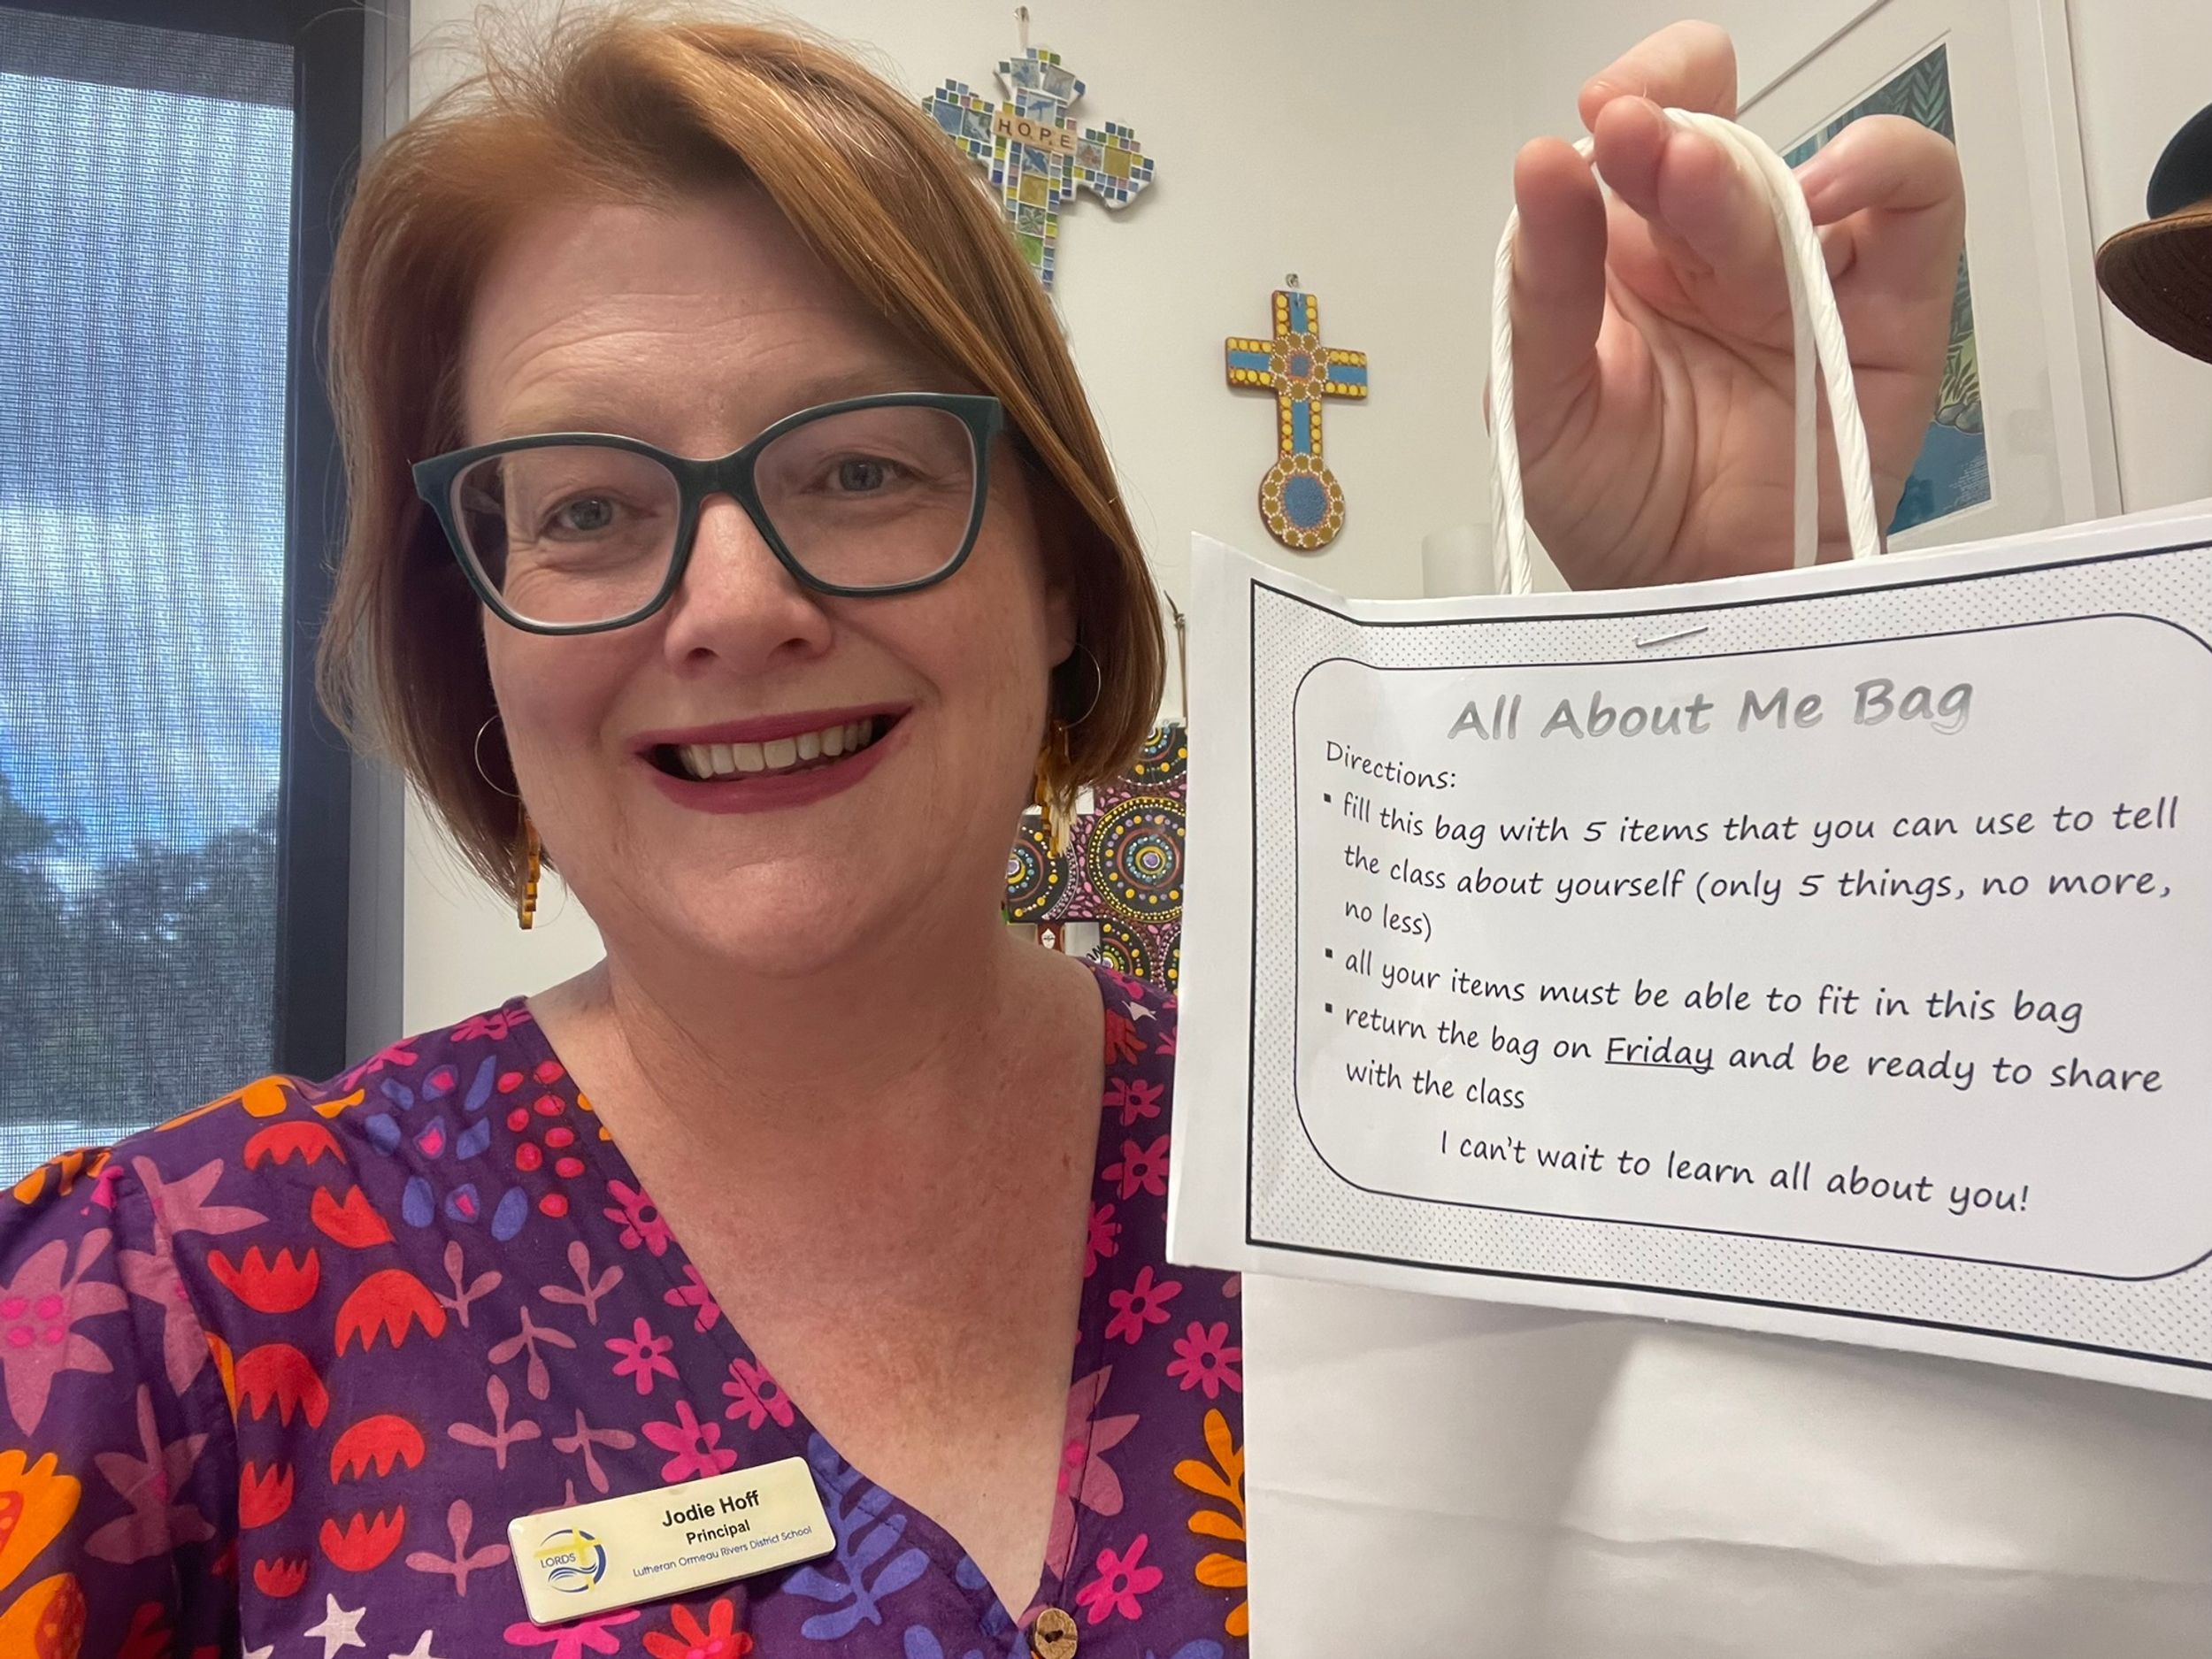 HOPE
All About Me Bag
Directions:
▪ fill this bag with 5 items that you can use to tell
the class about yourself (only 5 things, no more,
no less)
▪ all your items must be able to fit in this bag
▪ return the bag on Friday and be ready to share
with the class
I can't wait to learn all about you!
Jodie Hoff
Principal
Lutheran Ormeau Rivers District School
LORDS